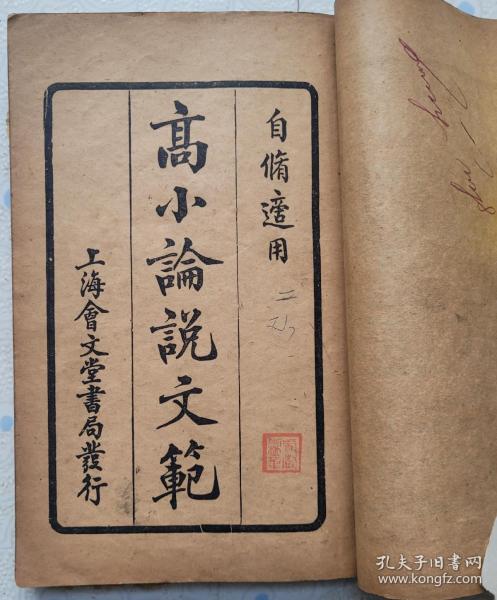 自脩適用
高小論説文範
上海會文堂書局發行
孔夫子旧书网
www.kongfz.com